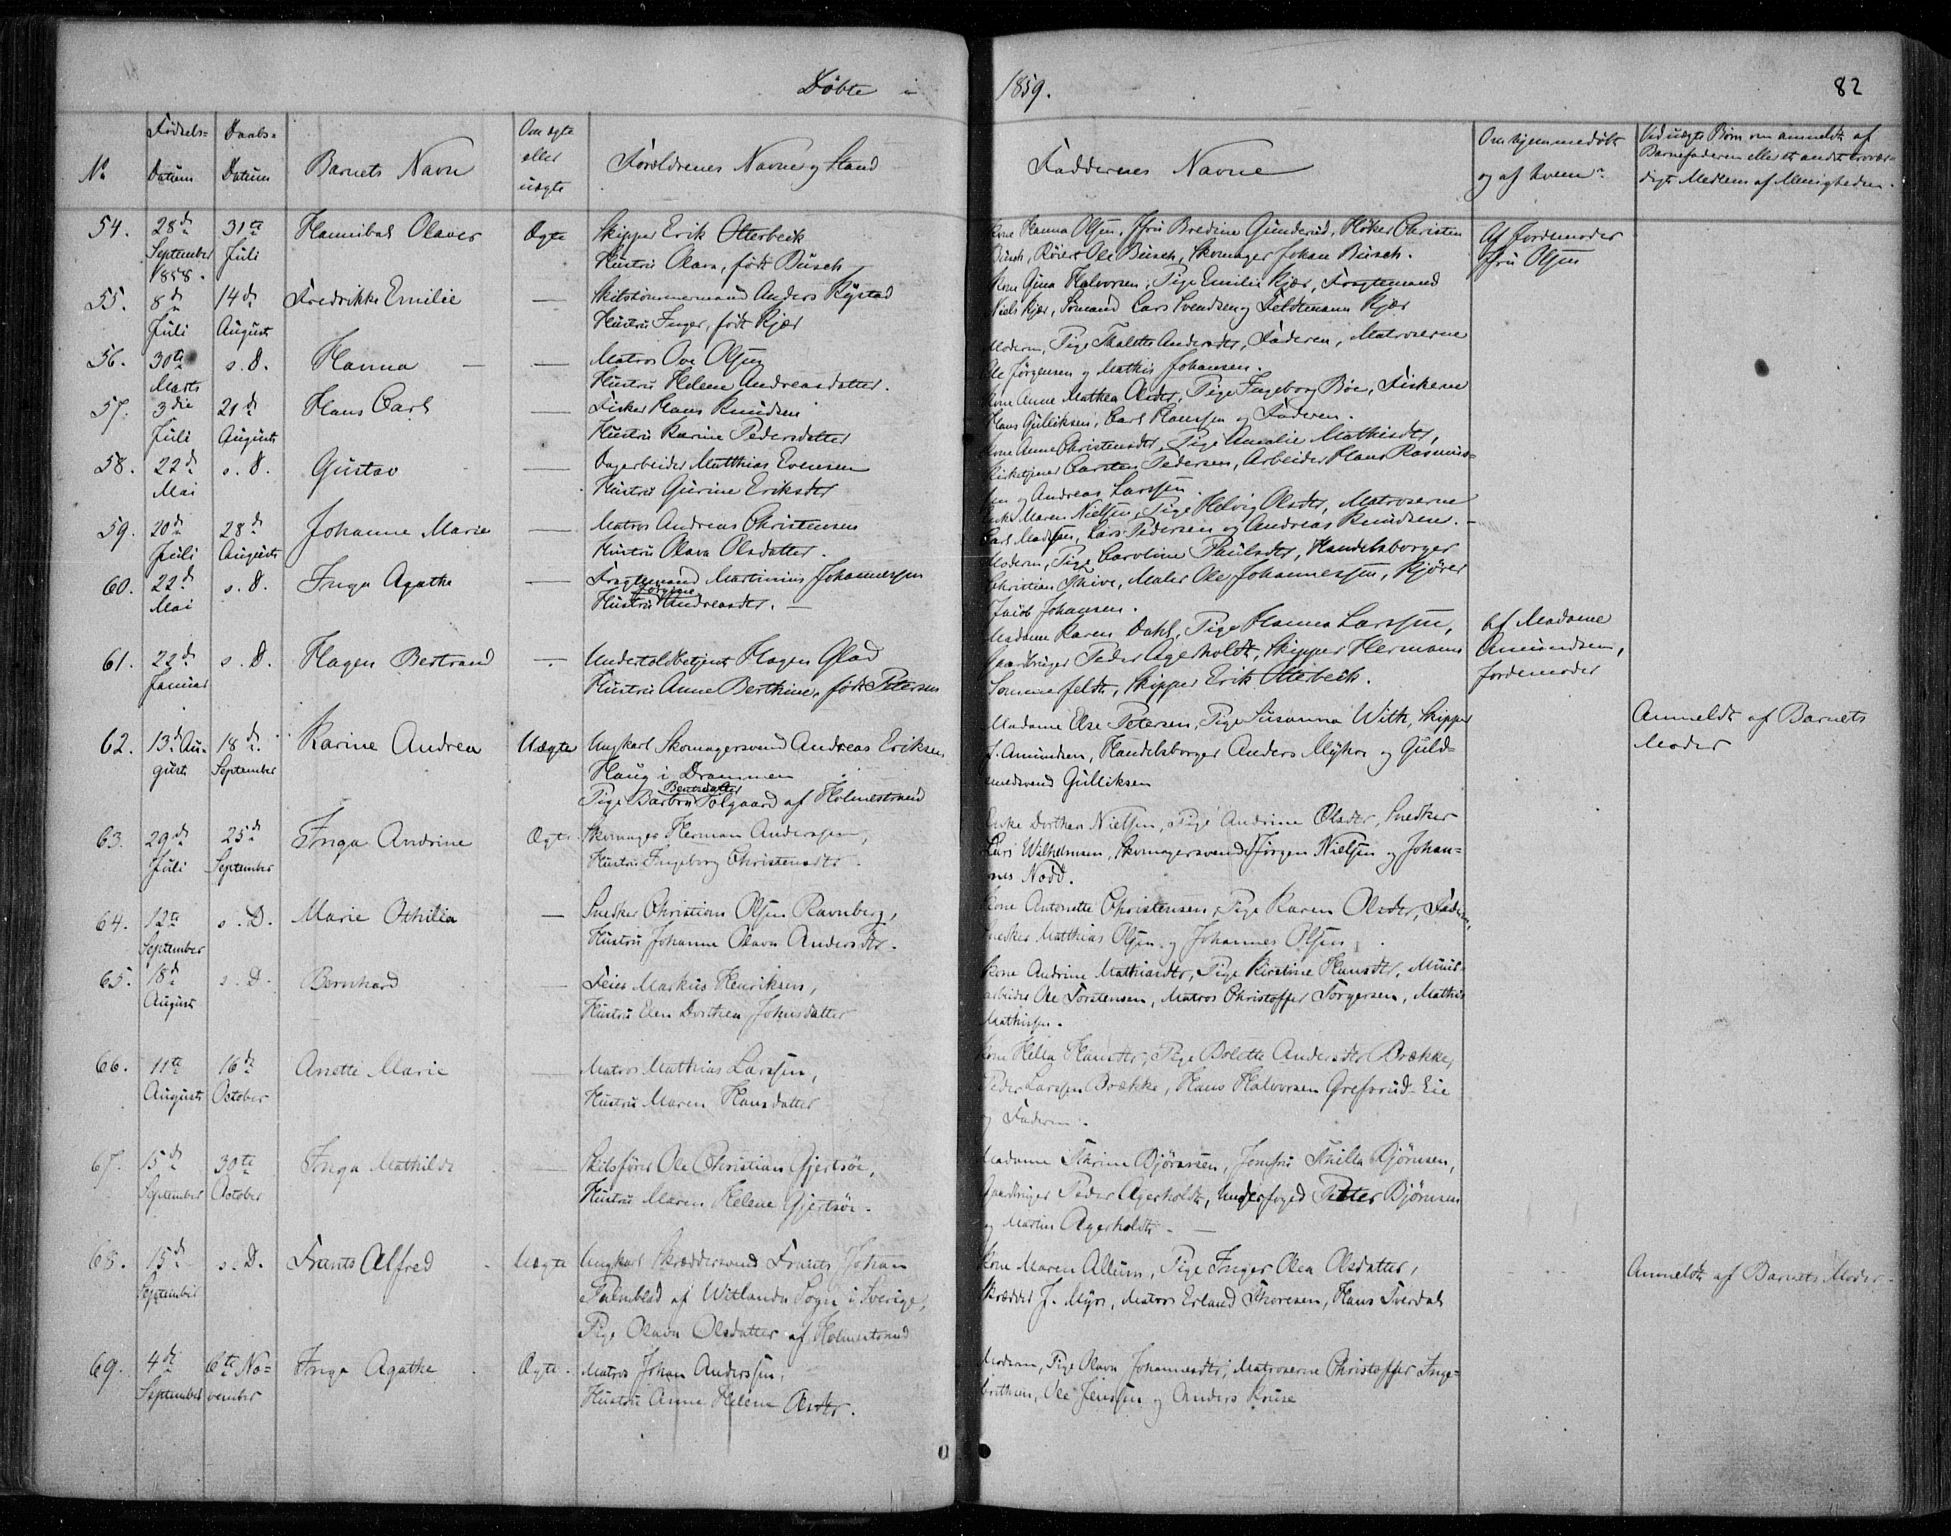 Døbte i 1859. 82
No
Fødsels-
Datum
Daabs-
Datum
Barnets Navn
Om ægte
eller
uægte
Forældrenes Navne og Stand
Faddernes Navne
Om hjemmedøbt
og af hvem?
Ved uægte Børn om anmeldt af
Barnefaderen eller et andet trovær-
digt Medlem af Menigheden.
54. 28de September 1858. 31te Juli Hannibal Olaves Ægte
Skipper Erik Otterbech
Hustru Olava, født Busch
Kone Hanna Olsen, Fru Bredine Gunderud, Høker Christen
Busch, Røiert Ole Busch, Skomager Johan Busch.
Af Jordemoder
Fru Olsen
55. 8de Juli 14de August Fredrikke Emilie —
Skibstømmermand Anders Rystad
Hustru Inger, født Kjær
Kone Gina Halvorsen, Pige Emilie Kjær, Fragtemand
Niels Kjær, Sømand Lars Svendsen og Feldtmann Kjær
56. 30te Marts s. D. Hanna —
Matros Ove Olsen
Hustru Helene Andreasdatter.
Moderen, Pige Thalette Andersdtr, Faderen, Matroserne
Ole Jørgensen og Mathis Johansen.
57. 3die Juli 21de August Hans Carl —
Fisker Hans Knudsen
Hustru Karine Pedersdatter
Kone Anne Mathea Olsdtr, Pige Ingeborg Bøe, Fiskerne
Hans Gulliksen, Carl Hansen og Faderen.
58. 22de Mai s. D. Gustav —
Dagarbeider Matthias Evensen
Hustru Gurine Eriksdtr
Kone Anne Christensdtr, Pige Amalie Mathisdtr,
Kirketjener Carsten Pedersen, Arbeider Hans Rasmus-
sen og Andreas Larssen.
59. 20de Juli 28de August Johanne Marie —
Matros Andreas Christensen
Hustru Olava Olsdatter.
Enke Maren Nielsen, Pige Helvig Olsdtr, Matroserne
Carl Madsen, Lars Pedersen og Andreas Knudsen.
60. 22de Mai s. D. Inga Agathe —
Fragtemand Martinius Johannessen
Hustru Jørgine Andreasdtr. —
Moderen, Pige Caroline Paulsdtr, Handelsborger
Christian Skive, Maler Ole Johannessen, Kjører
Jacob Johansen.
61. 22de Januar s. D. Hagen Bertrand —
Undertoldbetjent Hagen Glad
Hustru Anne Berthine, født Petersen
Madame Karen Dahl, Pige Hanna Larssen,
Gaardbruger Peder Agerholdt, Skipper Hermann
Sommerfeldt, Skipper Erik Otterbech.
Af Madame
Amundsen,
Jordemoder
62. 13de August 18de September Karine Andrea Uægte
Ungkarl Skomagersvend Andreas Eriksen
Haug i Drammen
Pige Barbra Berntsdatter Solgaard af Holmestrand
Madame Else Petersen, Pige Susanna With, Skipper
J. Amundsen, Handelsborger Anders Myhre og Guld-
smedsvend Gulliksen
Anmeldt af Barnets
Moder
63. 29de Juli 25de September Inga Andrine Ægte
Skomager Herman Anderssen,
Hustru Ingeborg Christensdtr
Enke Dorthea Nielsen, Pige Andrine Olsdtr, Snedker
Lars Wilhelmsen, Skomagersvend Jørgen Nielsen og Johan-
nes Nodd.
64. 12te September s. D. Marie Othilia —
Snedker Christian Olsen Ravnberg,
Hustru Johanne Olava Andersdtr.
Kone Antonette Christensen, Pige Karen Olsdtr, Faderen,
Snedker Matthias Olsen og Johannes Olsen.
65. 18de August s. D. Bernhard —
Feier Markus Henriksen,
Hustru Elen Dorthea Johnsdatter
Kone Andrine Mathiasdtr, Pige Kirstine Hansdtr, Muur-
arbeider Ole Torstensen, Matros Christoffer Torgersen, Mathis
Mathissen.
66. 11te August 16de October Anette Marie —
Matros Matthias Larssen,
Hustru Maren Hansdatter
Kone Helia Hansdtr, Pige Bolette Andersdtr Brække,
Peder Larssen Brække, Hans Halvorsen Greferud-Eie
og Faderen.
67. 15de September 30te October Inga Mathilde —
Skibsfører Ole Christian Gjertsøe,
Hustru Maren Helene Gjertsøe.
Madame Thrine Bjørnsen, Jomfru Thilla Bjørnsen,
Gaardbruger Peder Agerholdt, Underfoged Petter Bjørnsen
og Martin Agerholdt. —
68. 15de September s. D. Frants Alfred Uægte
Ungkarl Skræddersvend Frants Johan
Palmblad af Witlanda Sogn i Sverige,
Pige Olava Olsdatter af Holmestrand
Kone Maren Allum, Pige Inger Olea Olsdatter,
Skrædder J. Myre, Matros Erland Thoresen, Hans Tverdal
Anmeldt af Barnets Moder.
69. 4de September 6te November Inga Agathe Ægte.
Matros Johan Anderssen,
Hustru Anne Helene Olsdtr.
Moderen, Pige Olava Johannesdtr, Matroserne Christoffer Inge-
brethsen, Ole Jenssen og Anders Kruse